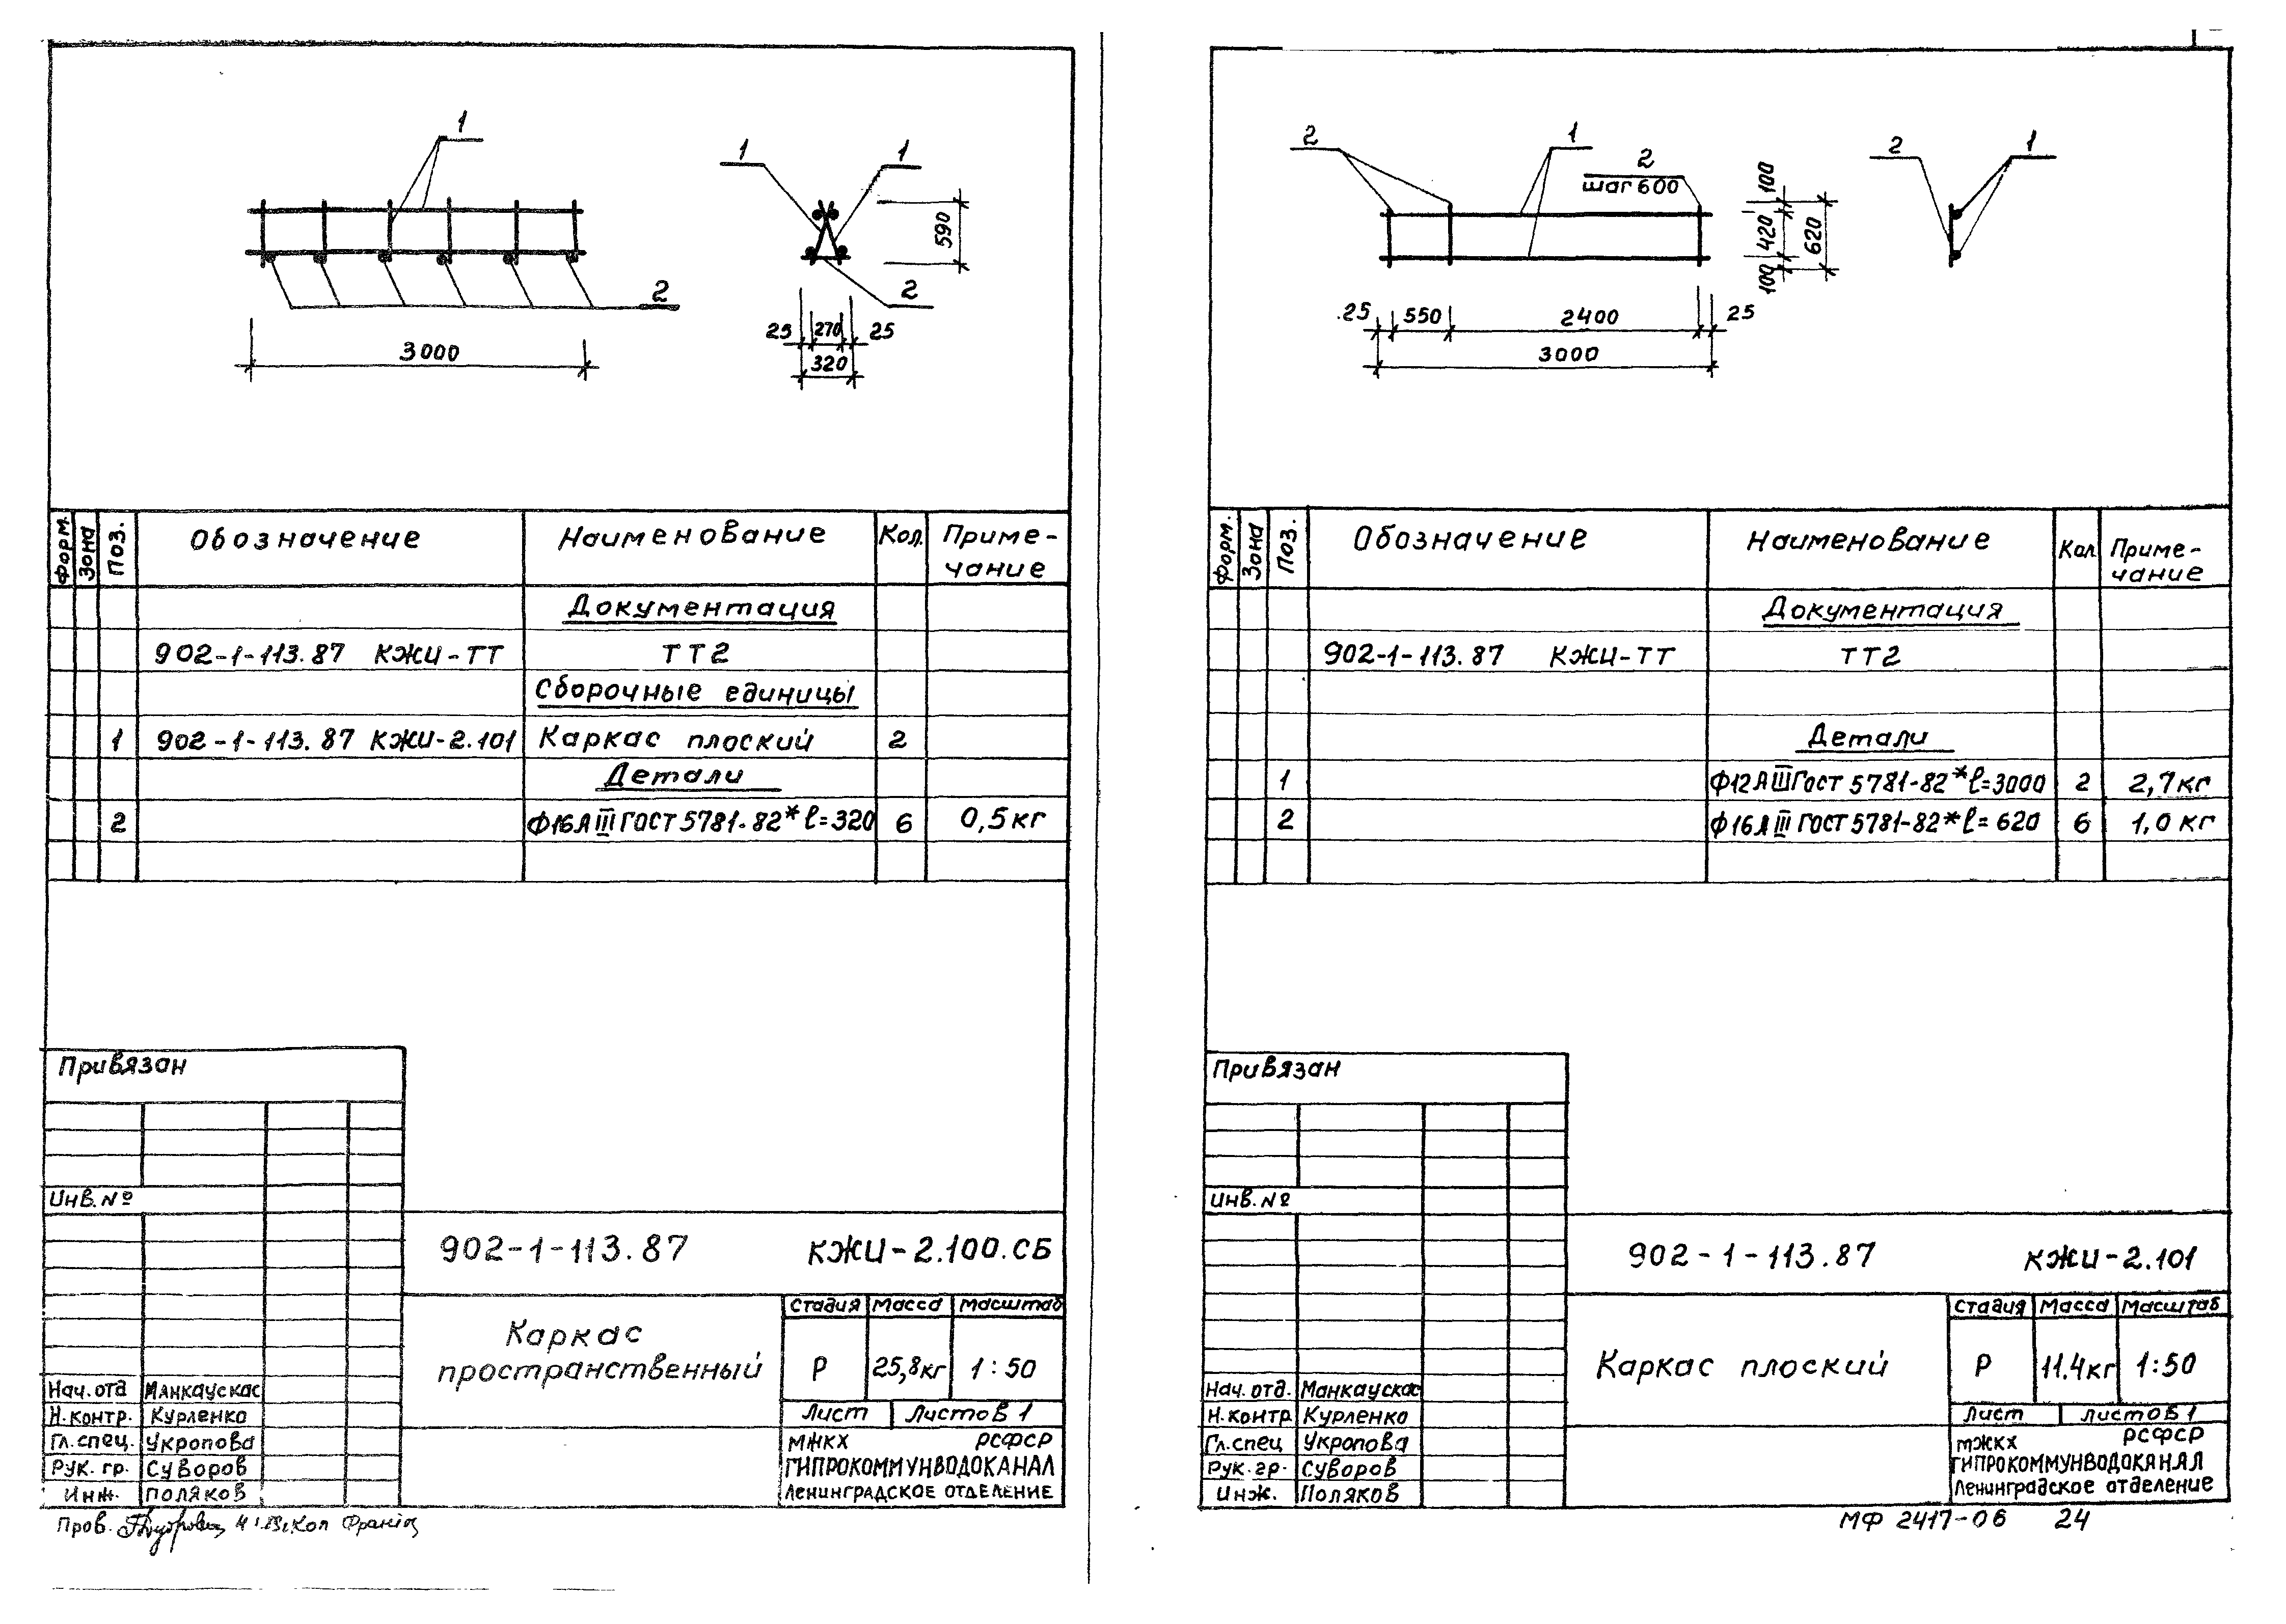 1
1
1
590
2
2
25 270 25
320
3000
Форм. Зона Поз. Обозначение Наименование Кол. Приме-
чание
Документация
902-1-113.87 КЖИ-ТТ ТТ2
Сборочные единицы
1 902-1-113.87 КЖИ-2.101 Каркас плоский 2
Детали
2 Ф16АIII ГОСТ 5781-82* ℓ=320 6 0,5кг
Привязан
Инв.№
902-1-113.87 КЖИ-2.100.СБ
Каркас
пространственный
Стадия Масса Масштаб
Р 25,8кг 1:50
Лист Листов 1
Нач.отд Манкаускас
Н.контр. Курленко
Гл.спец. Укропова
Рук.гр. Суворов
Инж. Поляков
МЖКХ РСФСР
ГИПРОКОММУНВОДОКАНАЛ
Ленинградское отделение
Пров.
Кол
2
1
2
шаг 600
2
1
100
420
100
620
25 550 2400 25
3000
Форм. Зона Поз. Обозначение Наименование Кол Приме-
чание
Документация
902-1-113.87 КЖИ-ТТ ТТ2
Детали
1 Ф12АIII ГОСТ 5781-82* ℓ=3000 2 2,7кг
2 Ф16АIII ГОСТ 5781-82* ℓ=620 6 1,0кг
Привязан
Инв.№
902-1-113.87 КЖИ-2.101
Каркас плоский
Стадия Масса Масштаб
Р 11.4кг 1:50
Лист Листов 1
Нач.отд. Манкаускас
Н.контр Курленко
Гл.спец Укропова
Рук.гр. Суворов
Инж. Поляков
МЖКХ РСФСР
ГИПРОКОММУНВОДОКАНАЛ
Ленинградское отделение
МФ 2417-06 24